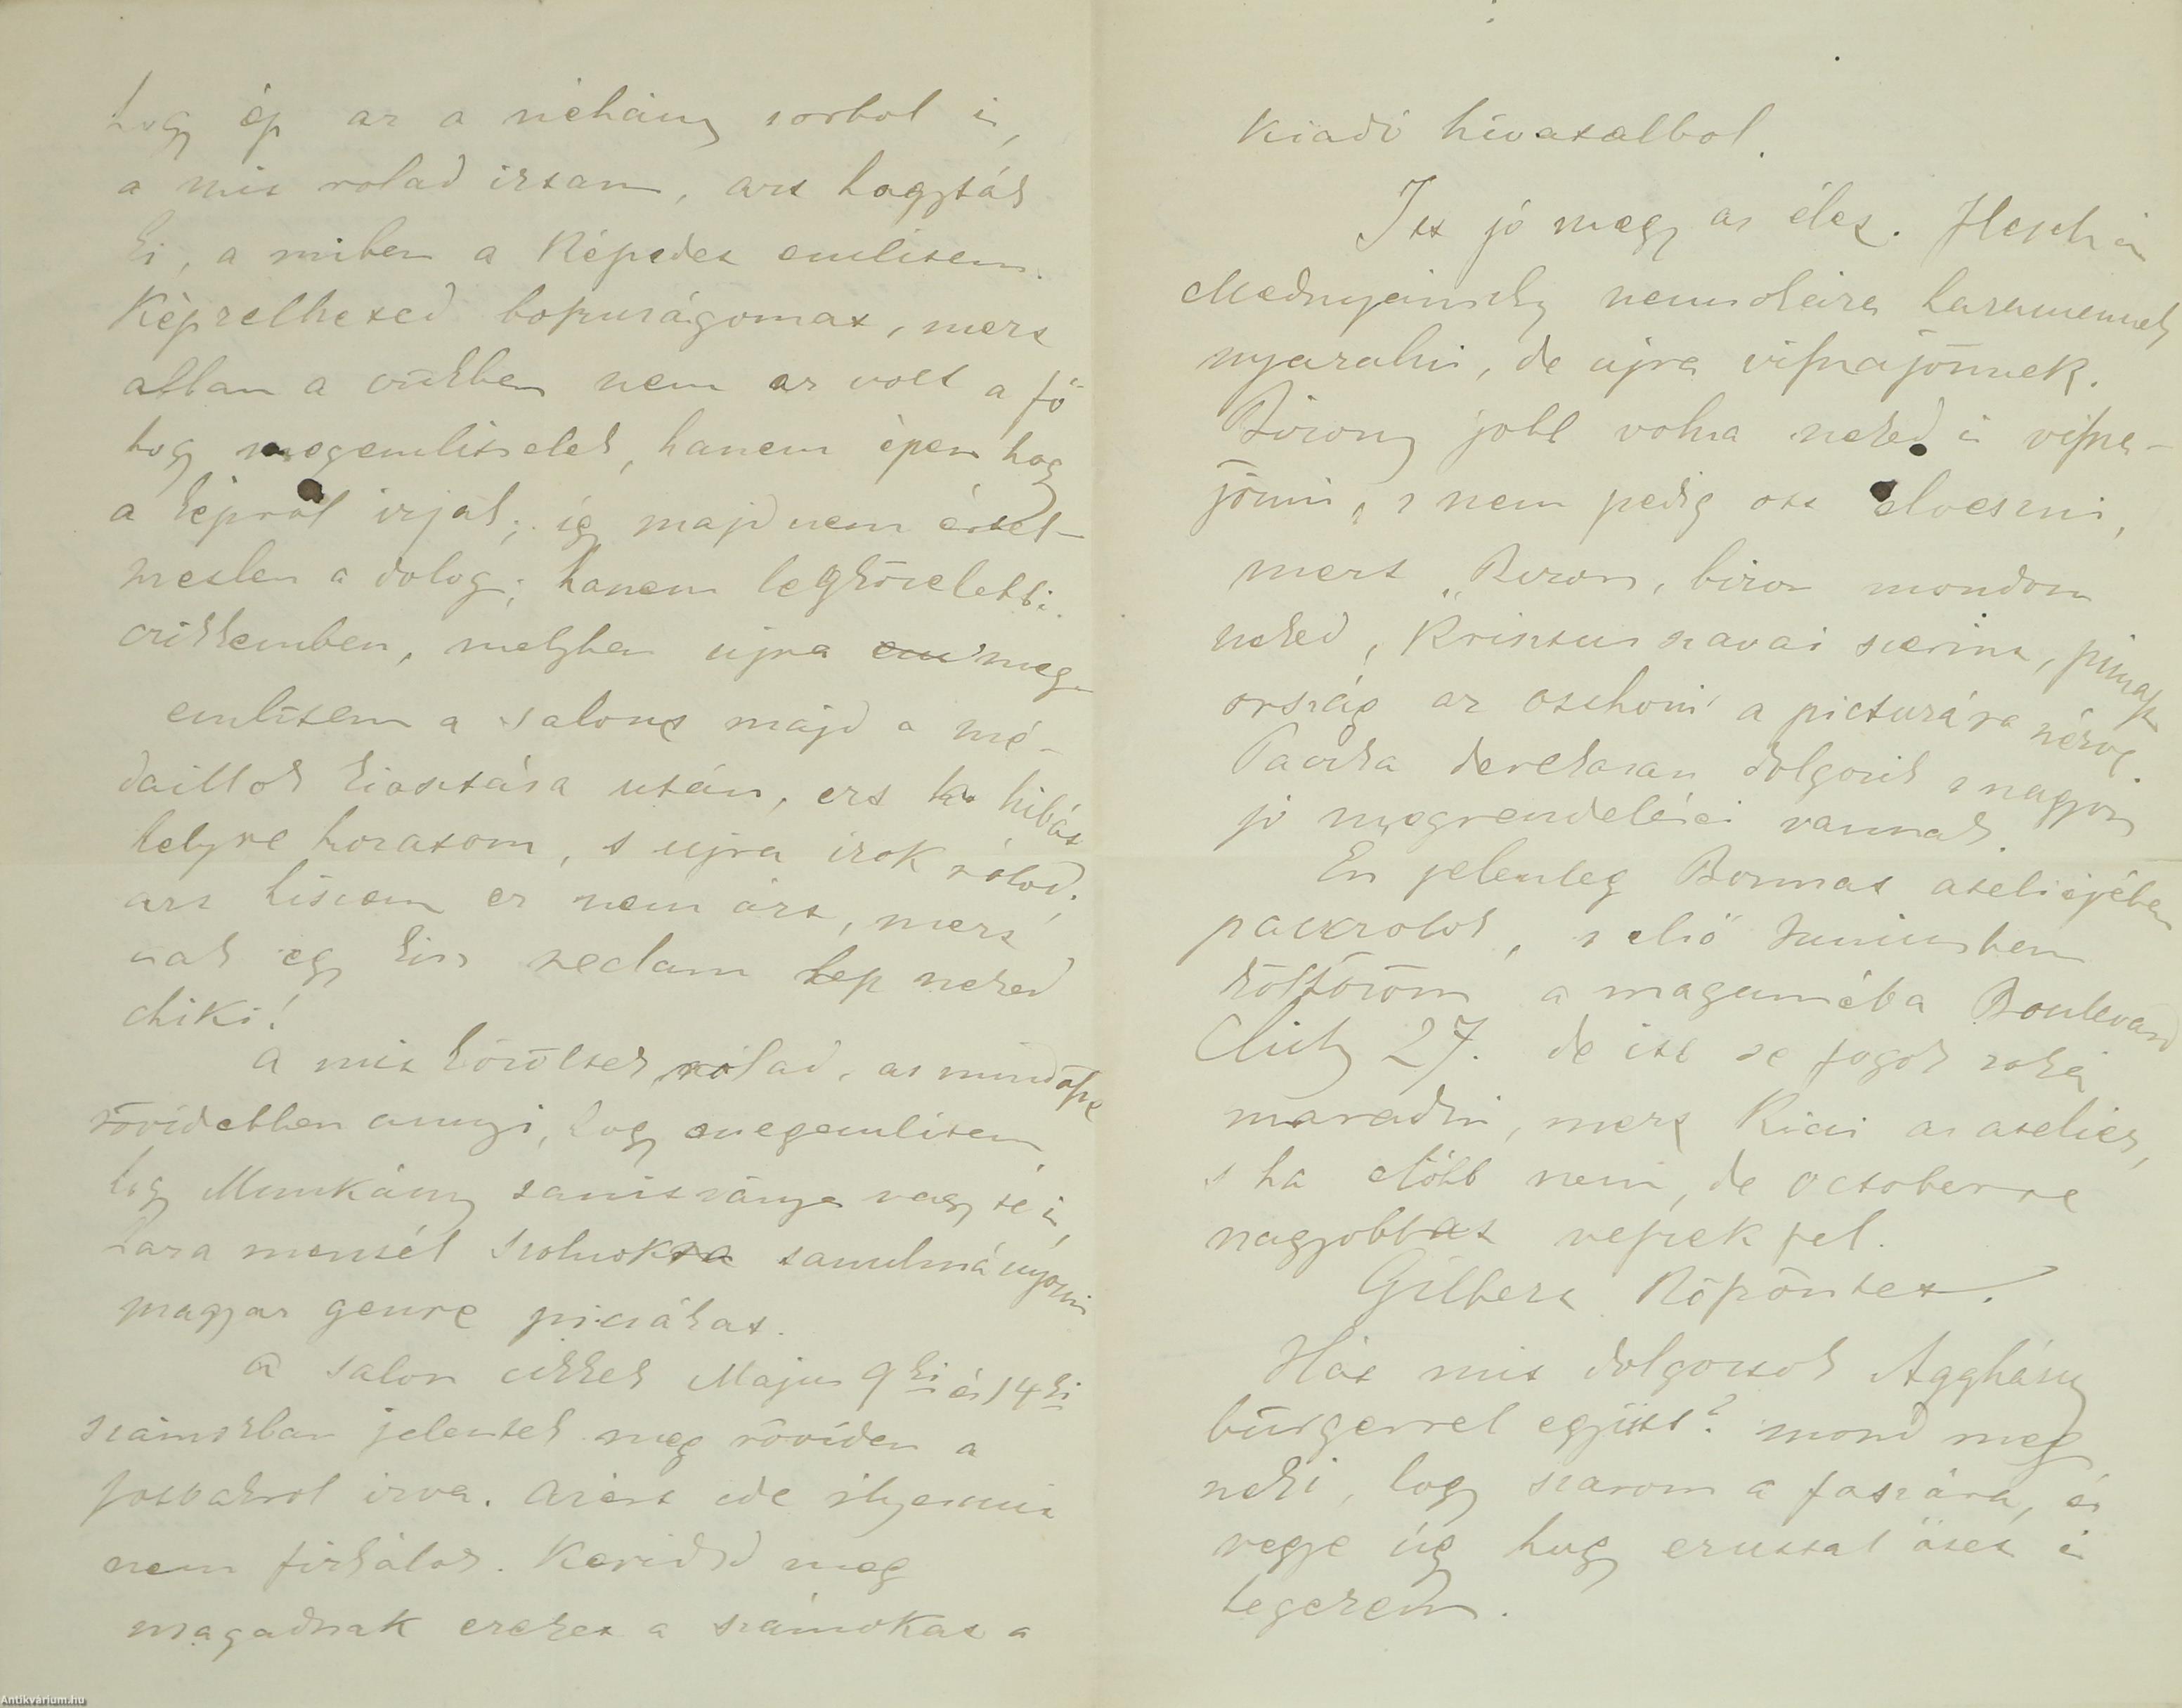 hogy ép az a nehány sorbol is,
a mit rolad irtam, azt hagyták
ki, a miben a képedet emlitem.
Képzelheted boszuságomat, mert
abban a cikkben nem az volt a fő
hogy megemlitselek, hanem épen hogy
a képről irjak; igy majd nem értel-
metlen a dolog; hanem legközelebbi
czikkemben, melyben ujra meg-
emlitem a salont majd a mé-
daillok kiosztása után, ezt a hibát
helyre hozatom, s ujra irok rólad;
azt hiszem ez nem árt, mert
csak egy kis reclam lesz neked
chiki!
A mit közöltek rólad, az mindössze
rövidebben annyi, hogy megemlitem
hogy Munkácsy tanitványa vagy te is,
haza mentél Szolnokra tanulmányozni
magyar genre piciákat.
A salon cikkek Majus 9ki és 14ki
számokban jelentek meg röviden a
szobakrol irva. Azért ide ilyenmit
nem firkálok. Keritsd meg
magadnak ezeket a számokat a
kiadó hivatalbol.
Itt jó megy az élet. Flesch és
Mednyánszky nemsokára hazamennek
nyaralni, de ujra visszajönnek.
Bizony jobb volna neked is vissza-
jönni, s nem pedig ott elveszni,
mert „Bizon, bizon mondom
neked, Krisztus szavai szerint, pimasz
ország az otthoni a picturára nézve.
Paczka derekasan dolgozik s nagyon
jó megrendelései vannak.
Én jelenleg Bonnat ateliejében
paczolok, s elsö Juniusben
költözöm a magaméba Boulevard
Clichy 27. de itt se fogok soká
maradni, mert kicsi az atelier,
s ha előbb nem, de octoberre
nagyobbat veszek fel.
Gilbert köszöntet.
Hát mit dolgoztok Agghásy
bürgerrel együtt? mond meg
neki, hogy szarom a faszára, és
vegye úgy hogy ezuttal ötet is
tegezem.
Antikvárium.hu